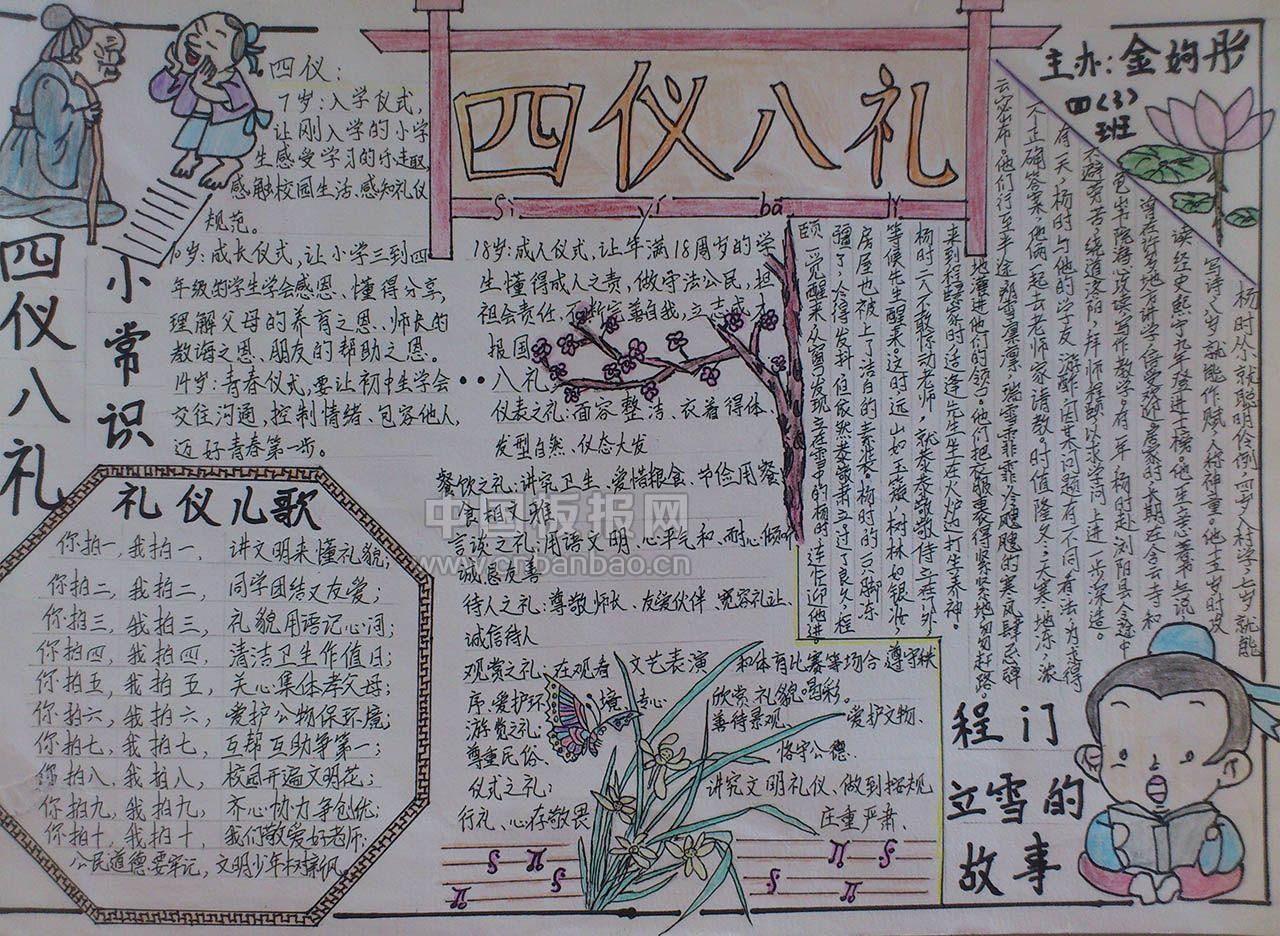 四仪八礼
sì yí bā lǐ
主办:金姁彤
四(3)
班
四仪八礼
小常识
四仪:
7岁:入学仪式,
让刚入学的小学
生感受学习的乐趣,
感触校园生活、感知礼仪
规范。
10岁:成长仪式,让小学三到四
年级的学生学会感恩、懂得分享,
理解父母的养育之恩、师长的
教诲之恩、朋友的帮助之恩。
14岁:青春仪式,要让初中生学会
交往沟通,控制情绪、包容他人,
迈好青春第一步。
18岁:成人仪式,让年满18周岁的学
生懂得成人之责,做守法公民,担
社会责任,不断完善自我,立志成才
报国
八礼
仪表之礼:面容整洁、衣着得体、
发型自然、仪态大发
餐饮之礼:讲究卫生、爱惜粮食、节俭用餐
食相文雅
言谈之礼:用语文明、心平气和、耐心倾听
诚恳友善
待人之礼:尊敬师长、友爱伙伴、宽容礼让、
诚信待人
观赏之礼:在观看 文艺表演 和体育比赛等场合遵守秩
序、爱护环境、专心 欣赏礼貌喝彩。
游览之礼: 善待景观、 爱护文物、
尊重民俗、 恪守公德。
仪式之礼: 讲究文明礼仪、做到按规
行礼、心存敬畏 庄重严肃、
礼仪儿歌
你拍一,我拍一, 讲文明来懂礼貌;
你拍二,我拍二, 同学团结又友爱;
你拍三,我拍三, 礼貌用语记心间;
你拍四,我拍四, 清洁卫生作值日;
你拍五,我拍五, 关心集体孝父母;
你拍六,我拍六, 爱护公物保环境;
你拍七,我拍七, 互帮互助争第一;
你拍八,我拍八, 校园开遍文明花;
你拍九,我拍九, 齐心协力争创优;
你拍十,我拍十, 我们敬爱好老师.
公民道德要牢记,文明少年树新风。
程门
立雪的
故事
杨时从小就聪明伶俐,四岁入村学,七岁就能
写诗,八岁就能作赋,人称神童。他十五岁时攻
读经史,熙宁九年登进士榜。他一生立志著书立说,
曾在许多地方讲学,倍受欢迎。居家时,长期在含云寺和
龟山书院潜心攻读,写作教学。有一年,杨时赴浏阳县令途中
不辞劳苦,绕道洛阳,拜师程颐,以求学问上进一步深造。
有一天,杨时与他的学友游酢,因某问题有不同看法,为求得
不正确答案,他俩一起去老师家请教。时值隆冬,天寒地冻,浓
云密布。他们行至半途,朔雪凛凛,瑞雪霏霏,冷飕飕的寒风肆无忌惮
地灌进他们的领口。他们把衣服裹得紧紧地,匆匆赶路
来到程颐家时,适逢先生坐在火炉边打坐养神。
杨时二人不敢惊动老师,就恭恭敬敬侍立在门外
等候先生醒来。这时远山如玉簇,树林如银妆
房屋也被上了洁白的素装。杨时的一只脚冻
疆了,冷得发抖,但依然恭敬肃立。过了良久,程
颐一觉醒来,从窗发现立在雪中的杨时,连忙迎他进。
中国板报网
www.cnbanbao.cn